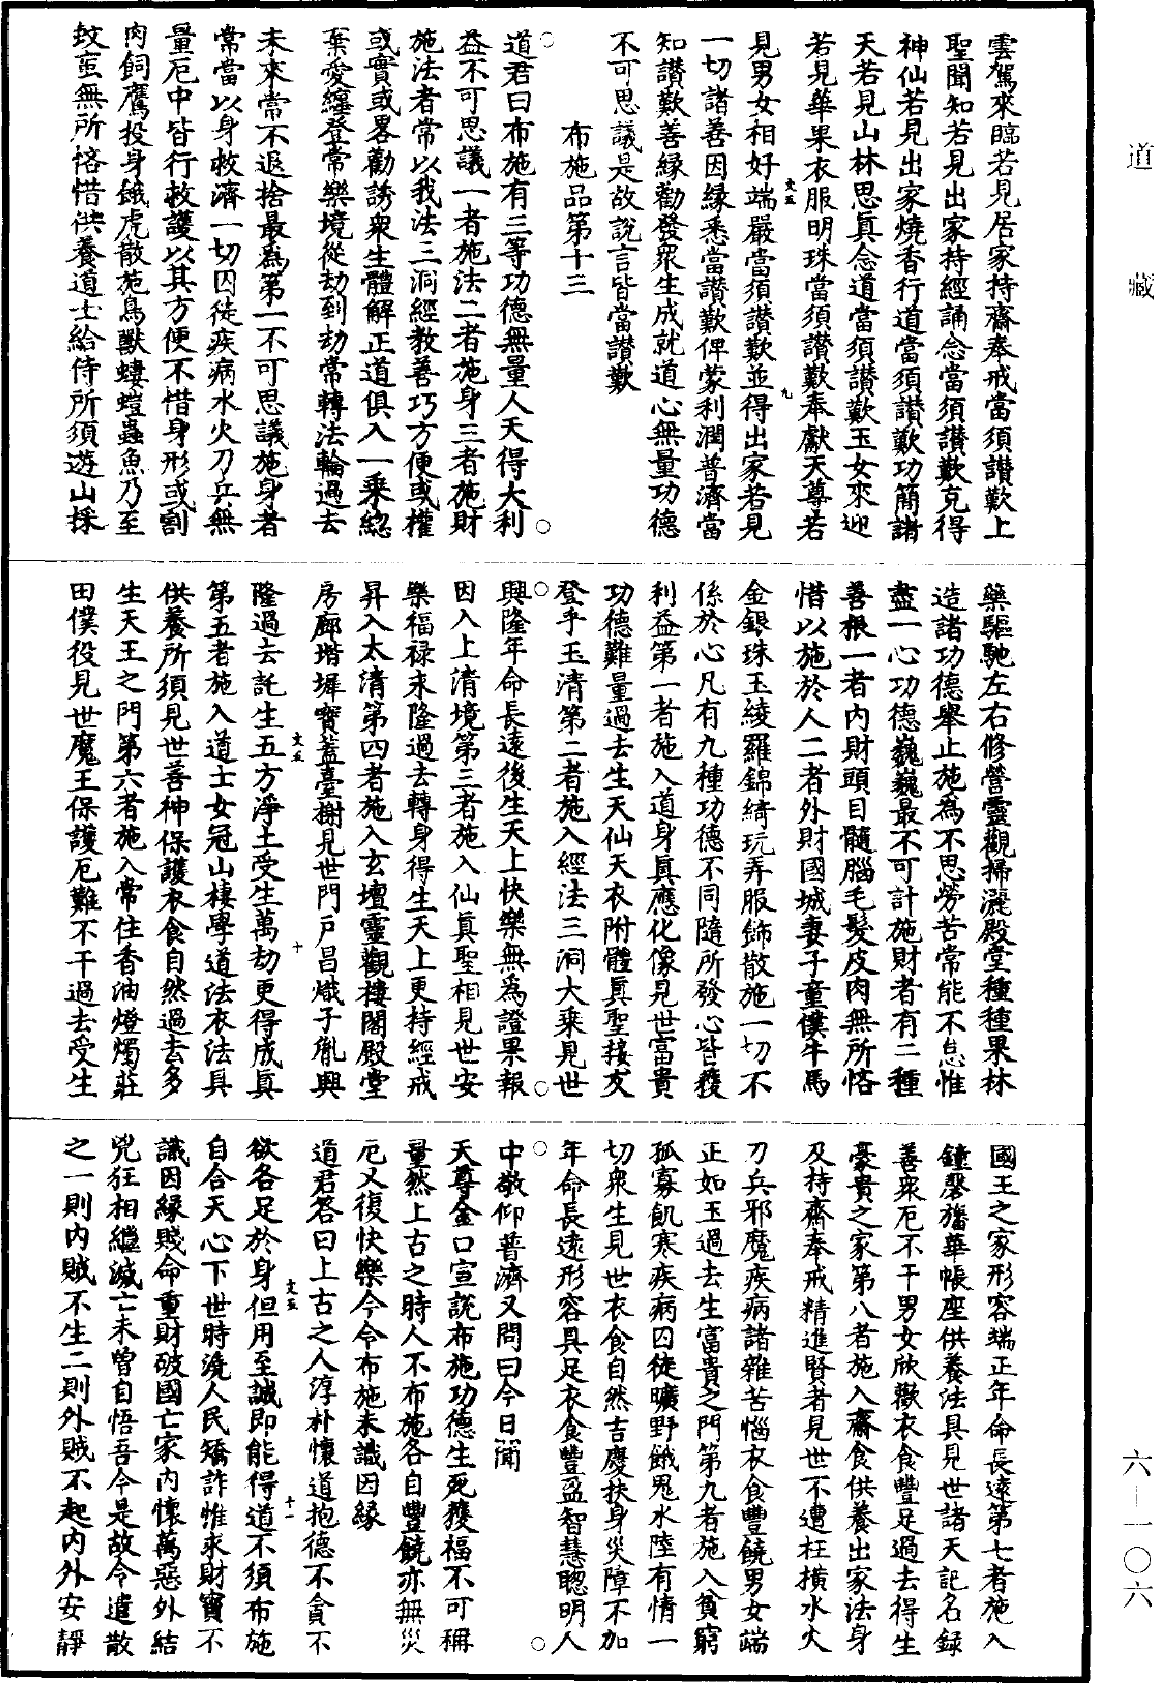 道藏
雲駕來臨若見居家持齋奉戒當須讚歎上
聖聞知若見出家持經誦念當須讚歎克得
神仙若見出家燒香行道當須讚歎功簡諸
天若見山林思眞念道當須讚歎玉女來迎
若見華果衣服明珠當須讚歎奉獻天尊若
文五 九
見男女相好端嚴當須讚歎並得出家若見
一切諸善因緣悉當讚歎俾蒙利潤普濟當
知讚歎善緣勸發衆生成就道心無量功德
不可思議是故說言皆當讚歎
布施品第十三
○ ○
道君曰布施有三等功德無量人天得大利
益不可思議一者施法二者施身三者施財
施法者常以我法三洞經教善巧方便或權
或實或畧勸誘衆生體解正道俱入一乘總
棄愛纏登常樂境從劫到劫常轉法輪過去
未來常不退捨最爲第一不可思議施身者
常當以身救濟一切囚徒疾病水火刀兵無
量厄中皆行救護以其方便不惜身形或割
肉飼鷹投身餓虎散施鳥獸螻螘蟲魚乃至
蚊蝱無所恡惜供養道士給侍所須遊山採
藥驅馳左右修營靈觀掃灑殿堂種種果林
造諸功德舉止施爲不思勞苦常能不怠惟
盡一心功德巍巍最不可計施財者有二種
善根一者內財頭目髓腦毛髮皮肉無所恡
惜以施於人二者外財國城妻子童僕牛馬
金銀珠玉綾羅錦綺玩弄服飾散施一切不
係於心凡有九種功德不同隨所發心皆獲
利益第一者施入道身眞應化像見世富貴
功德難量過去生天仙天衣附體眞聖接友
登乎玉清第二者施入經法三洞大乘見世
○ ○
興隆年命長遠後生天上快樂無爲證果報
因入上清境第三者施入仙眞聖相見世安
樂福祿來隆過去轉身得生天上更持經戒
昇入太清第四者施入玄壇靈觀樓閣殿堂
房廊堦墀寶蓋臺榭見世門戶昌熾子胤興
文五 十
隆過去託生五方淨土受生萬劫更得成眞
第五者施入道士女冠山棲學道法衣法具
供養所須見世善神保護衣食自然過去多
生天王之門第六者施入常住香油燈燭莊
田僕役見世魔王保護厄難不干過去受生
國王之家形容端正年命長遠第七者施入
鐘磬旛華帳座供養法具見世諸天記名錄
善衆厄不干男女欣歡衣食豐足過去得生
豪貴之家第八者施入齋食供養出家法身
及持齋奉戒精進賢者見世不遭枉橫水火
刀兵邪魔疾病諸雜苦惱衣食豐饒男女端
正如玉過去生富貴之門第九者施入貧窮
孤寡飢寒疾病囚徒曠野餓鬼水陸有情一
切衆生見世衣食自然吉慶扶身災障不加
年命長遠形容具足衣食豐盈智慧聰明人
○ ○
中敬仰普濟又問曰今日聞
天尊金口宣說布施功德生死獲福不可稱
量然上古之時人不布施各自豐饒亦無災
厄又復快樂今令布施未識因緣
道君答曰上古之人淳朴懷道抱德不貪不
文五 十一
欲各足於身但用至誠即能得道不須布施
自合天心下世時澆人民矯詐惟求財寶不
識因緣賤命重財破國亡家內懷萬惡外結
兇狂相繼減亡未曾自悟吾今是故令遣散
之一則內賊不生二則外賊不起內外安靜
六—一〇六